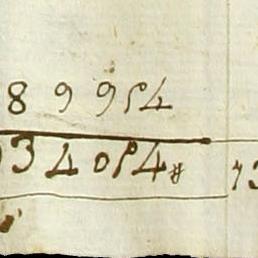 8 9 9 5 4
3 4 0 5 4 #
13